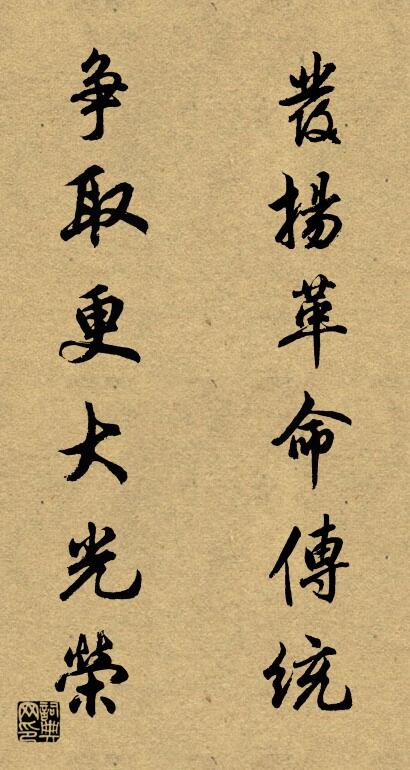 發揚革命傳統
爭取更大光榮
詞典网印